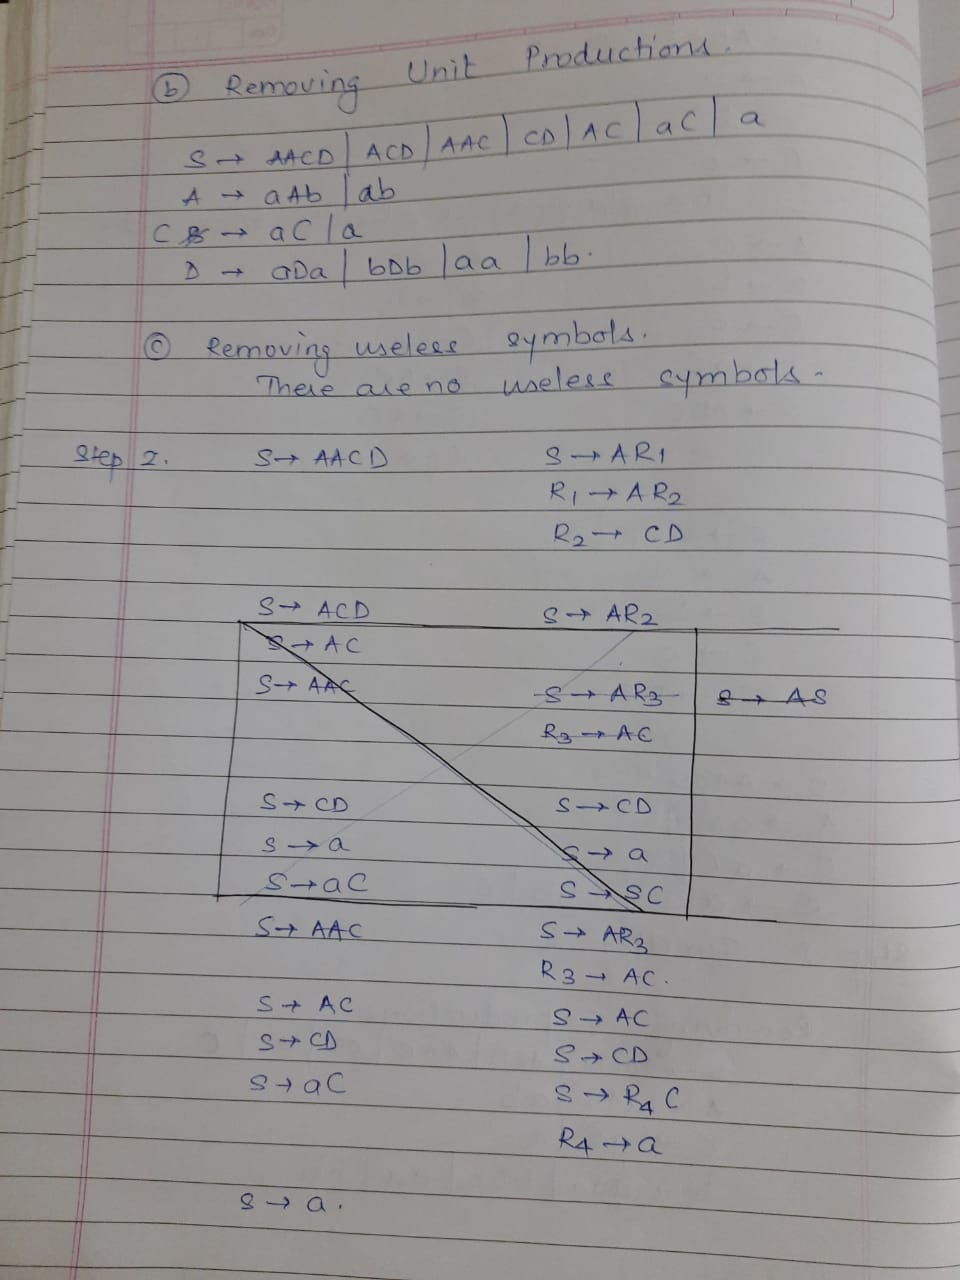 (b) Removing Unit Productions.
S → AACD | ACD | AAC | CD | AC | aC | a
A → aAb | ab
C B → aC | a
D → aDa | bDb | aa | bb.
(c) Removing useless symbols.
There are no useless symbols.
Step 2. S → AACD S → AR1
R1 → AR2
R2 → CD
S → ACD S → AR2
S → AC
S → AAC S → AR3 S → AS
R3 → AC
S → CD S → CD
S → a S → a
S → aC S → SC
S → AAC S → AR3
R3 → AC.
S → AC S → AC
S → CD S → CD
S → aC S → R4 C
R4 → a
S → a.